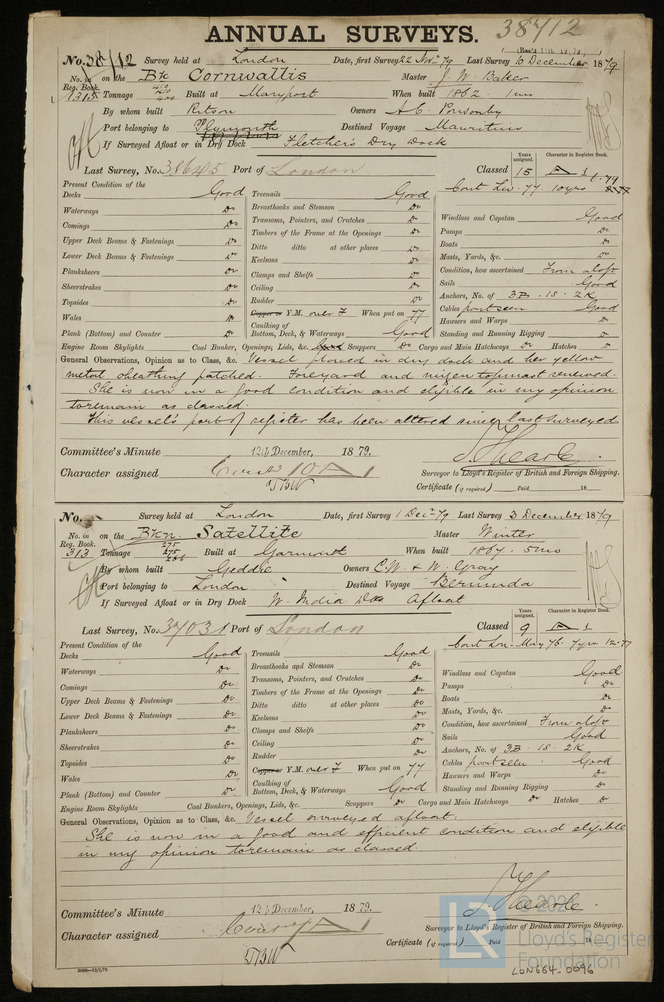 ANNUAL SURVEYS. 38712
(Rev'd 19.79.)
No. 38712 Survey held at London Date, first Survey 22 Nov. 79 Last Survey 10 December 1879
No. in Reg. Book. 1315 on the Bk Cornwallis Master J. W. Baker
Tonnage 410 410 400 Built at Maryport When built 1862 1 mo
By whom built Ritson Owners A C Ponsonby
Port belonging to Plymouth Destined Voyage Mauritius
If Surveyed Afloat or in Dry Dock Fletcher's Dry Dock
Last Survey, No. 38645 Port of London Classed Years assigned. 15 Character in Register Book. A 1 4.79
Present Condition of the
Cont Liv. 77 10 yrs
Decks Good Treenails Good
Waterways Do Breasthooks and Stemson Do Windlass and Capstan Good
Comings Do Transoms, Pointers, and Crutches Do Pumps Do
Upper Deck Beams & Fastenings Do Timbers of the Frame at the Openings Do Boats Do
Lower Deck Beams & Fastenings Do Ditto ditto at other places Do Masts, Yards, &c. Do
Planksheers Do Keelsons Do Condition, how ascertained From aloft
Sheerstrakes Do Clamps and Shelfs Do Sails Good
Topsides Do Ceiling Do Anchors, No. of 3B. 1S. 2K
Wales Do Rudder Do Cables part seen Good
Plank (Bottom) and Counter Do Copper or Y.M. over F When put on 77 Hawsers and Warps Do
Caulking of Bottom, Deck, & Waterways Good Standing and Running Rigging Do
Engine Room Skylights Coal Bunker, Openings, Lids, &c. Good Scuppers Do Cargo and Main Hatchways Do Hatches Do
General Observations, Opinion as to Class, &c. Vessel placed in dry dock and her yellow
metal sheathing patched. Foreyard and mizen topmast renewed.
She is now in a good condition and eligible in my opinion
to remain as classed.
This vessel's port of register has been altered since last surveyed
Committee's Minute 12th December, 1879.
Character assigned Cont 10 A 1
TBW
J. Hearle.
Surveyor to Lloyd's Register of British and Foreign Shipping.
Certificate (if required) Paid 18
No. Survey held at London Date, first Survey 1 Decr 79 Last Survey 3 December 1879
No. in Reg. Book. 313 on the Bkn. Satellite Master Winter
Tonnage 275 275 256 Built at Garmouth When built 1867. 5 mo
By whom built Geddie Owners C. W. & W. Gray
Port belonging to London Destined Voyage Bermuda
If Surveyed Afloat or in Dry Dock W. India Dks Afloat
Last Survey, No. 37031 Port of London Classed Years assigned. 9 Character in Register Book. A 1
Present Condition of the
Cont Lon. May 76. 7 yrs 12.77
Decks Good Treenails Good
Waterways Do Breasthooks and Stemson Do Windlass and Capstan Good
Comings Do Transoms, Pointers, and Crutches Do Pumps Do
Upper Deck Beams & Fastenings Do Timbers of the Frame at the Openings Do Boats Do
Lower Deck Beams & Fastenings Do Ditto ditto at other places Do Masts, Yards, &c. Do
Planksheers Do Keelsons Do Condition, how ascertained From aloft
Sheerstrakes Do Clamps and Shelfs Do Sails Good
Topsides Do Ceiling Do Anchors, No. of 3B. 1S. 2K
Wales Do Rudder Do Cables part seen Good
Plank (Bottom) and Counter Do Copper or Y.M. over F When put on 77 Hawsers and Warps Do
Caulking of Bottom, Deck, & Waterways Good Standing and Running Rigging Do
Engine Room Skylights Coal Bunkers, Openings, Lids, &c. Scuppers Do Cargo and Main Hatchways Do Hatches Do
General Observations, Opinion as to Class, &c. Vessel surveyed afloat.
She is now in a good and efficient condition and eligible
in my opinion to remain as classed
Committee's Minute 12th December, 1879.
Character assigned Cont A 1
TBW
J. Hearle
Surveyor to Lloyd's Register of British and Foreign Shipping.
Certificate (if required) Paid 18
LR © 202 Lloyd's Register Foundation
LON664-0096